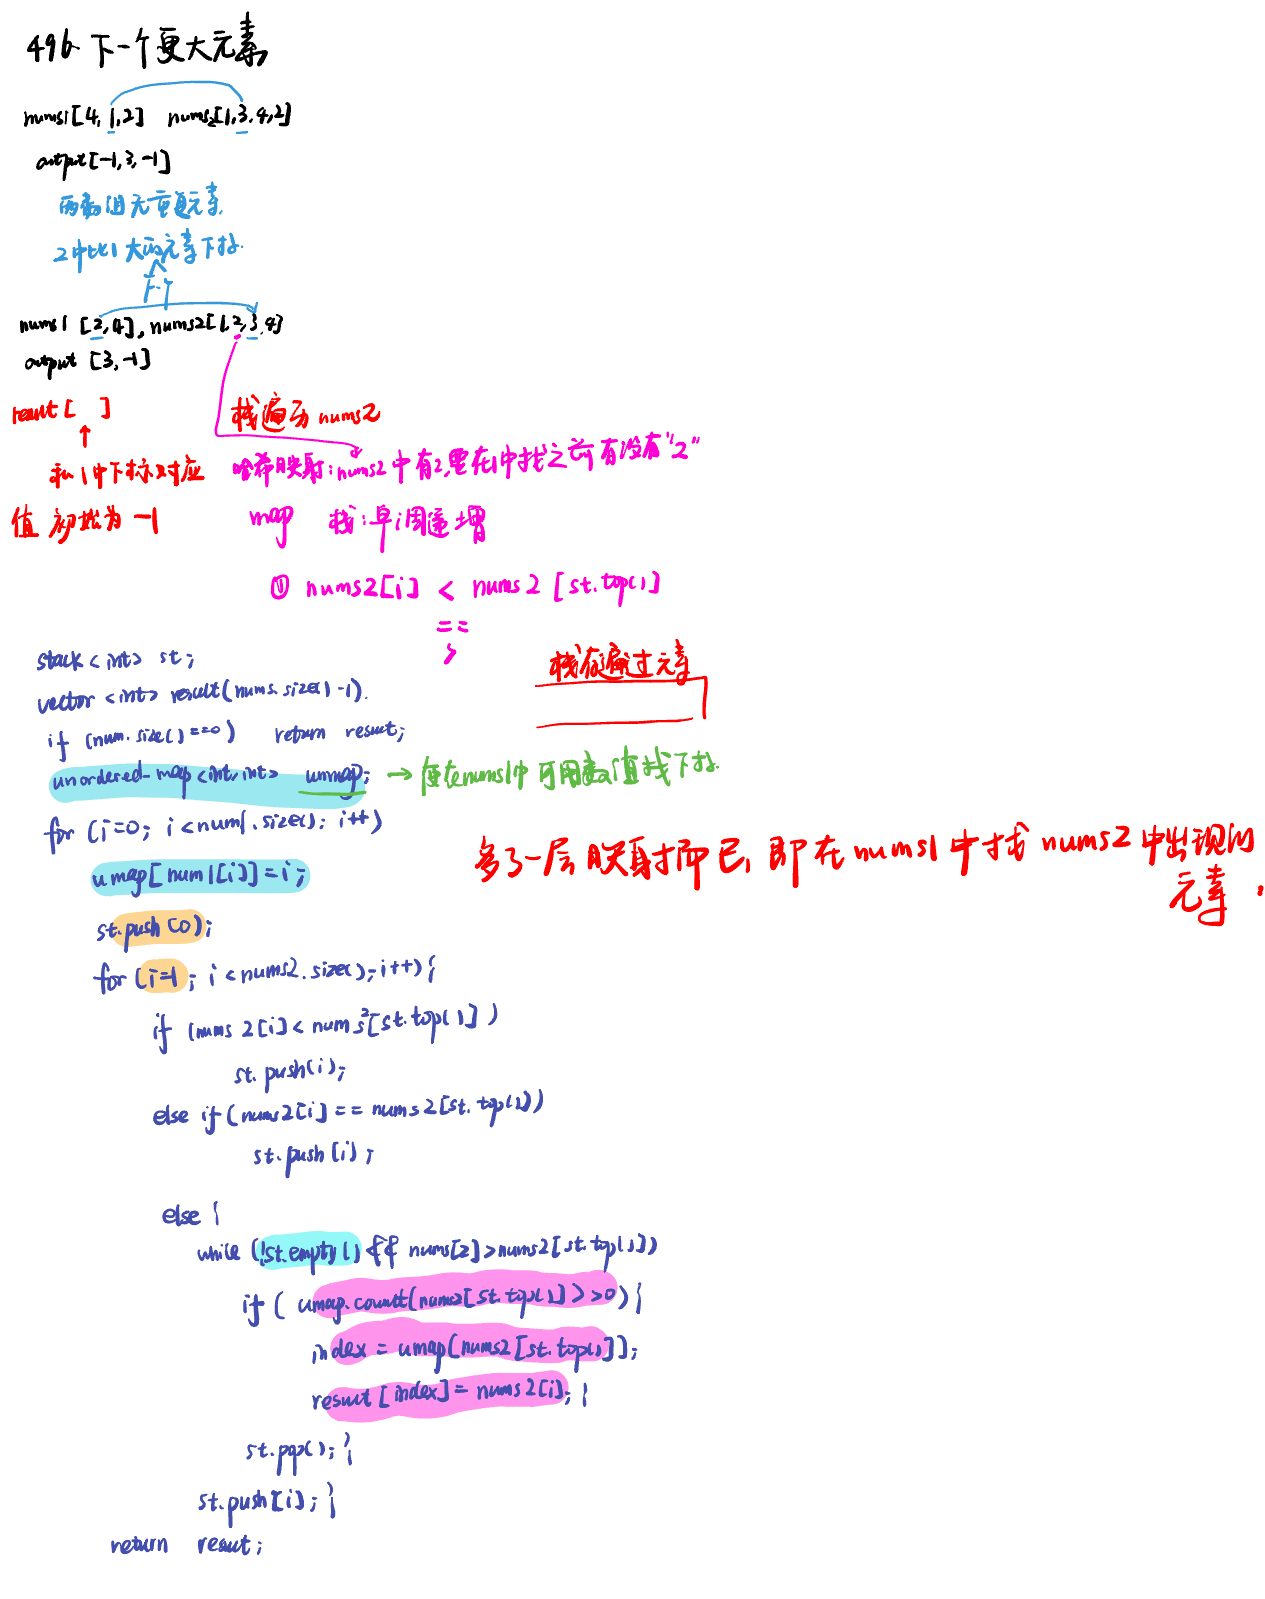 496. 下一个更大元素
nums1[4,1,2] nums2[1,3,4,2]
output[-1,3,-1]
两数组无重复元素.
2中比1大的元素下标.
下一个
nums1 [2,4], nums2[1,2,3,4]
output [3,-1]
result[ ]
和1中下标对应
值 初始为 -1
栈遍历 nums2
哈希映射: nums2中有2,要在1中找之前有没有"2"
map 栈:单调递增
① nums2[i] < nums2[st.top()]
==
>
栈存遍过元素
stack<int> st;
vector<int> result(nums.size()-1).
if (num.size()==0) return result;
unordered-map<int,int> unmap; → 便在nums1中可用数值找下标.
for (i=0; i<num1.size(); i++)
umap[num1[i]]=i;
多了一层映射而已, 即在nums1中找 nums2中出现的
元素.
st.push(0);
for (i=1; i<nums2.size(); i++){
if (nums2[i]<nums2[st.top()])
st.push(i);
else if(nums2[i]==nums2[st.top()])
st.push(i);
else {
while (!st.empty() && nums[2]>nums2[st.top()])
if ( umap.count(nums2[st.top()])>0){
index = umap(nums2[st.top()]);
result[index]=nums2[i]; }
st.pop(); }
st.push[i]; }
return result;